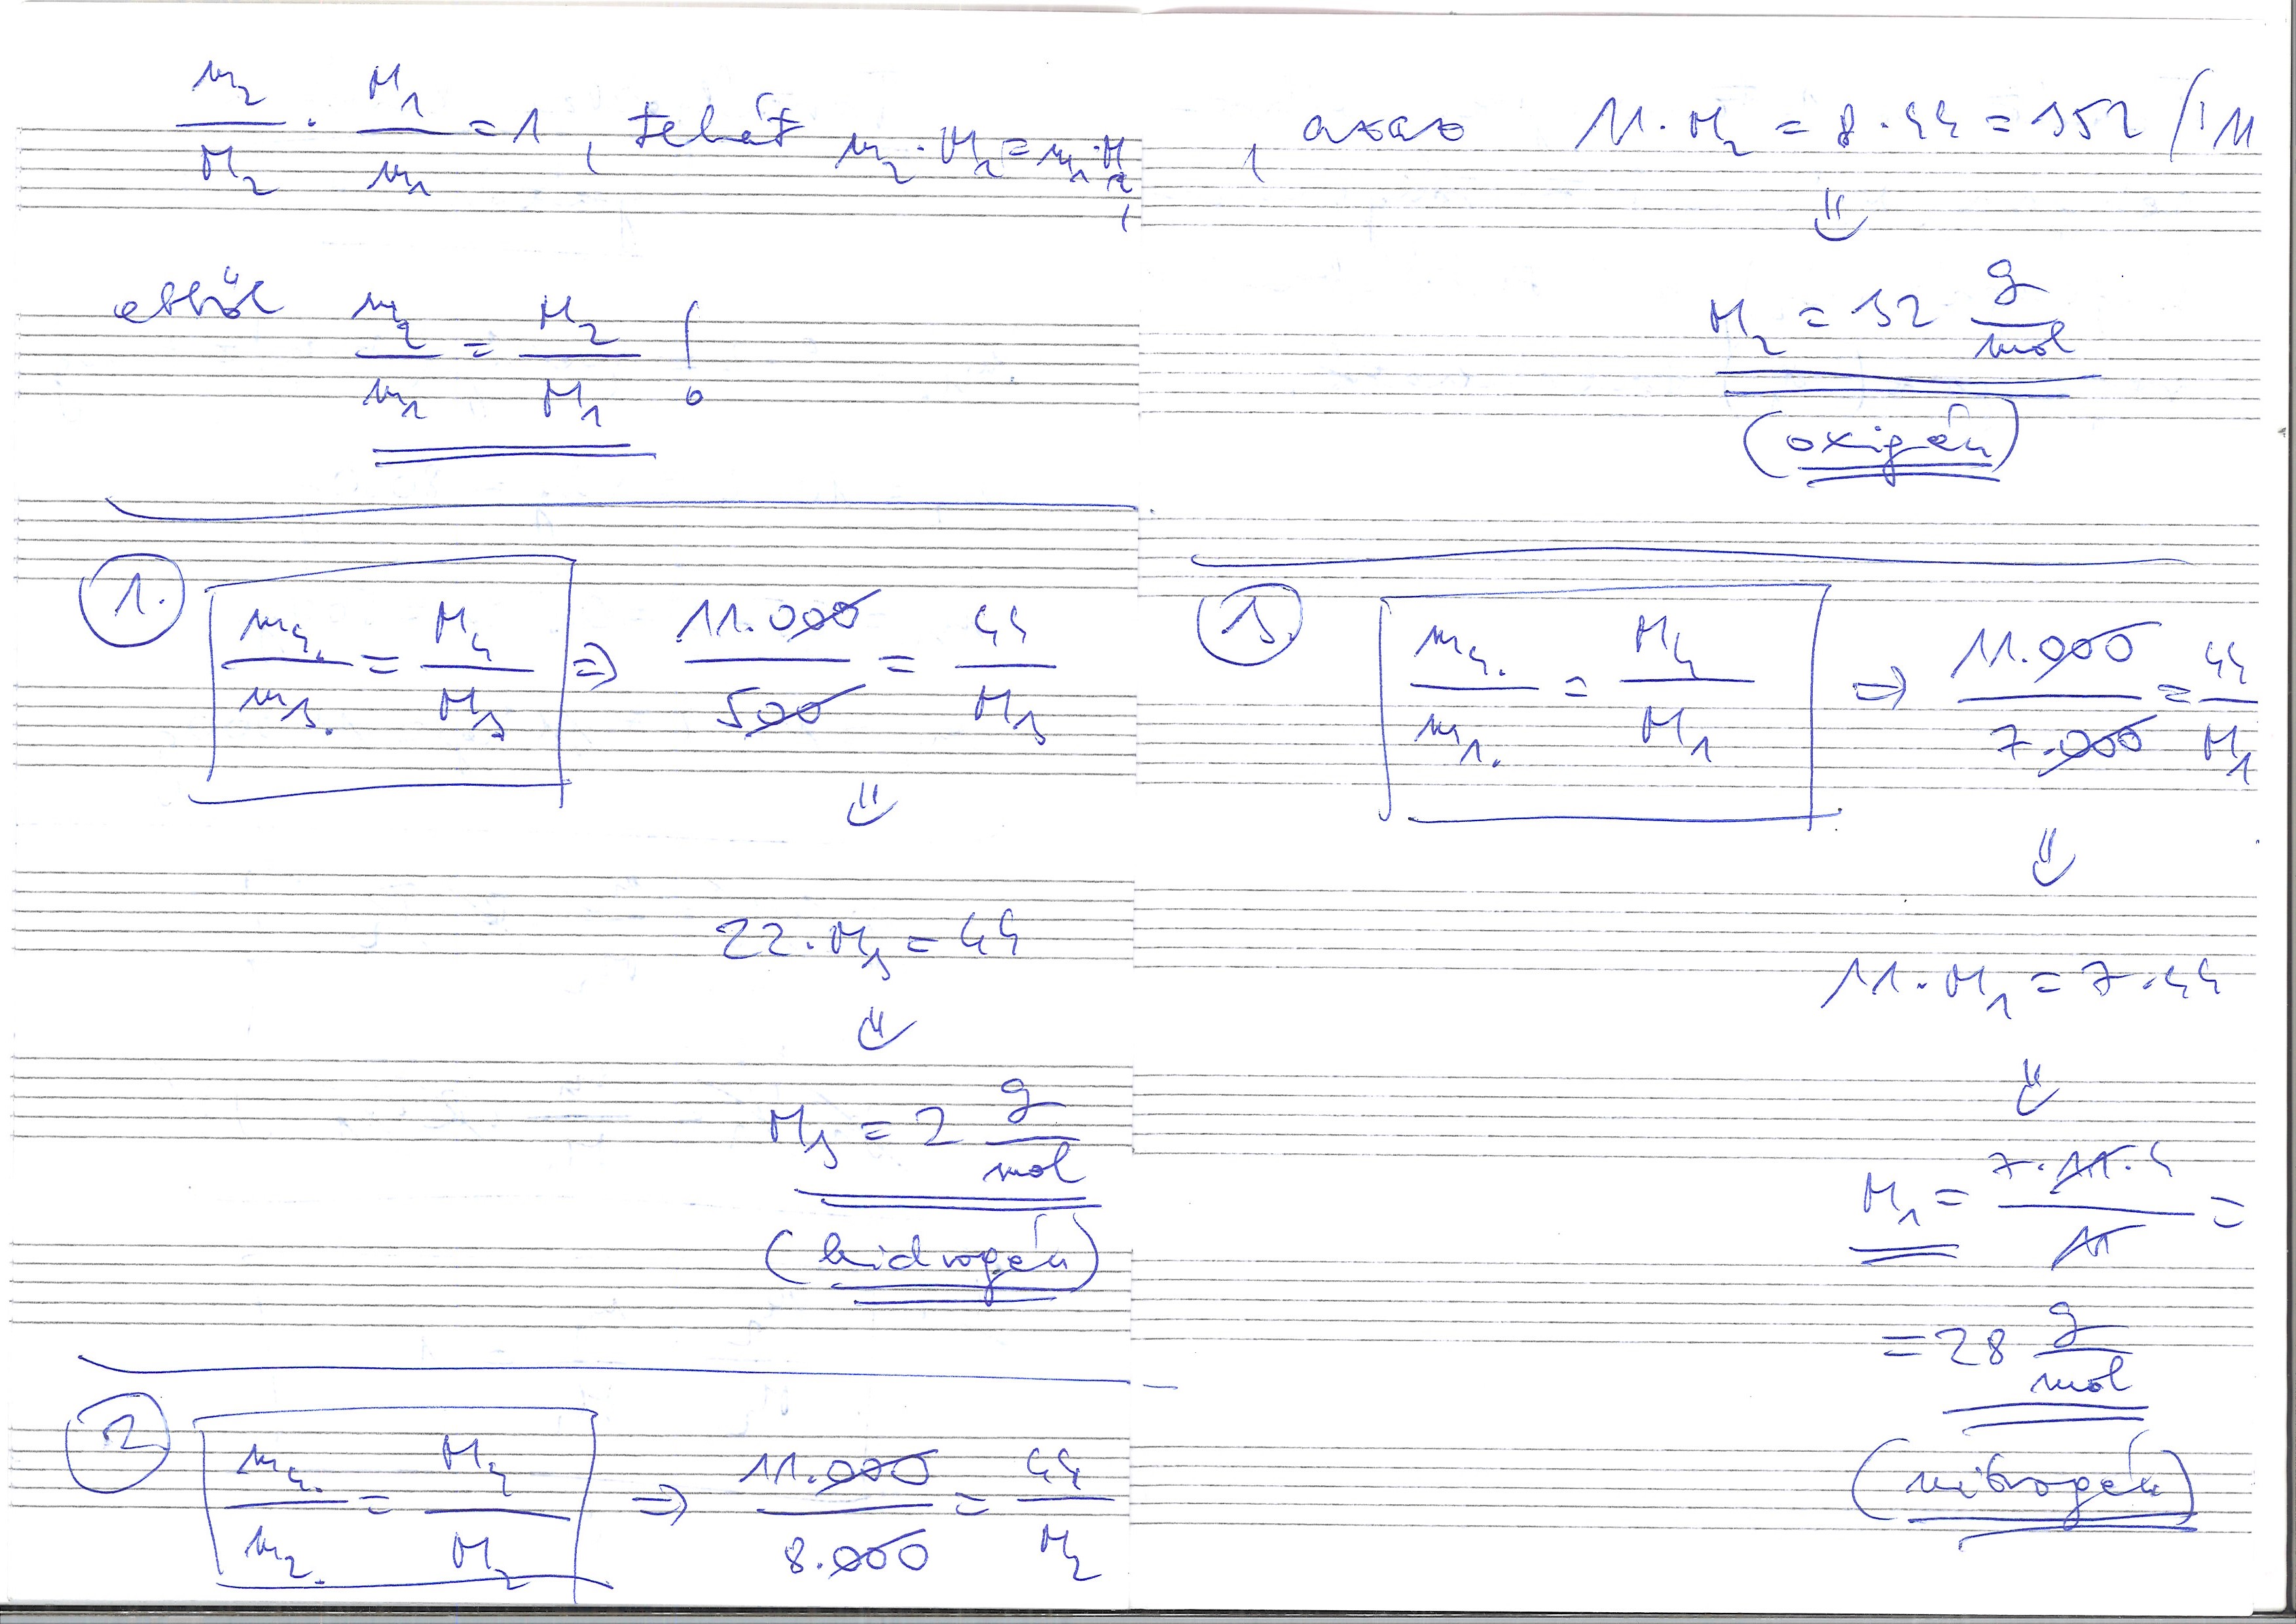 m₂/M₂ · M₁/m₁ = 1, tehát m₂·M₁ = m₁·M₂,
ebből m₂/m₁ = M₂/M₁ !
1. m₄/m₃ = M₄/M₃ ⇒ 11.000/500 = 44/M₃
⇓
22·M₃ = 44
⇓
M₃ = 2 g/mol
(hidrogén)
2 m₄/m₂ = M₄/M₂ ⇒ 11.000/8.000 = 44/M₂
, azaz 11·M₂ = 8·44 = 352 /:11
⇓
M₂ = 32 g/mol
(oxigén)
3. m₄/m₁ = M₄/M₁ ⇒ 11.000/7.000 = 44/M₁
⇓
11·M₁ = 7·44
⇓
M₁ = 7·11·4/11 =
= 28 g/mol
(nitrogén)